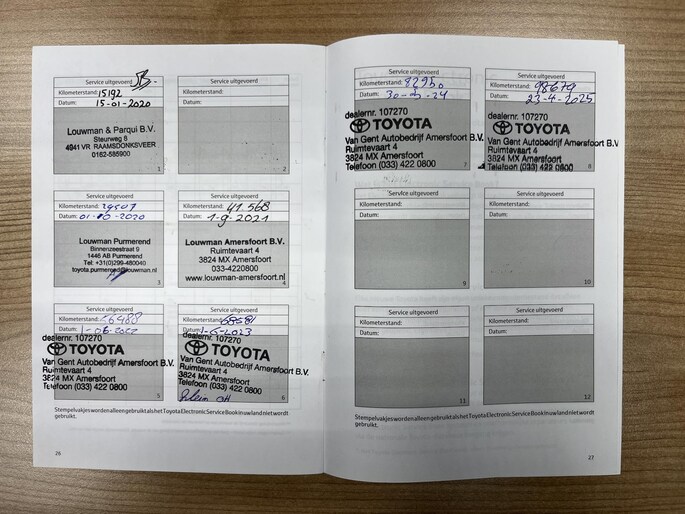 Service uitgevoerd
Kilometerstand: 15192
Datum: 15-01-2020
Louwman & Parqui B.V.
Steurweg 8
4941 VR RAAMSDONKSVEER
0162-585900
1
Service uitgevoerd
Kilometerstand:
Datum:
2
Service uitgevoerd
Kilometerstand:
Datum: 01-10-2020
Louwman Purmerend
Binnenzeestraat 9
1446 AB Purmerend
Tel: +31(0)299-480040
toyota.purmerend@louwman.nl
3
Service uitgevoerd
Kilometerstand: 41.568
Datum: 1-9-2021
Louwman Amersfoort B.V.
Ruimtevaart 4
3824 MX Amersfoort
033-4220800
www.louwman-amersfoort.nl
4
Service uitgevoerd
Kilometerstand:
Datum: 1-06-2022
dealernr. 107270
TOYOTA
Van Gent Autobedrijf Amersfoort B.V.
Ruimtevaart 4
3824 MX Amersfoort
Telefoon (033) 422 0800
5
Service uitgevoerd
Kilometerstand:
Datum: 1-6-2023
dealernr. 107270
TOYOTA
Van Gent Autobedrijf Amersfoort B.V.
Ruimtevaart 4
3824 MX Amersfoort
Telefoon (033) 422 0800
6
Stempelvakjes worden alleen gebruikt als het Toyota Electronic Service Book in uw land niet wordt
gebruikt.
26
Service uitgevoerd
Kilometerstand: 82950
Datum: 30-
-24
dealernr. 107270
TOYOTA
Van Gent Autobedrijf Amersfoort B.V.
Ruimtevaart 4
3824 MX Amersfoort
Telefoon (033) 422 0800
7
Service uitgevoerd
Kilometerstand: 98679
Datum: 23-4-2025
dealernr. 107270
TOYOTA
Van Gent Autobedrijf Amersfoort B.V.
Ruimtevaart 4
3824 MX Amersfoort
Telefoon (033) 422 0800
8
Service uitgevoerd
Kilometerstand:
Datum:
9
Service uitgevoerd
Kilometerstand:
Datum:
10
Service uitgevoerd
Kilometerstand:
Datum:
11
Service uitgevoerd
Kilometerstand:
Datum:
12
Stempelvakjes worden alleen gebruikt als het Toyota Electronic Service Book in uw land niet wordt
gebruikt.
27